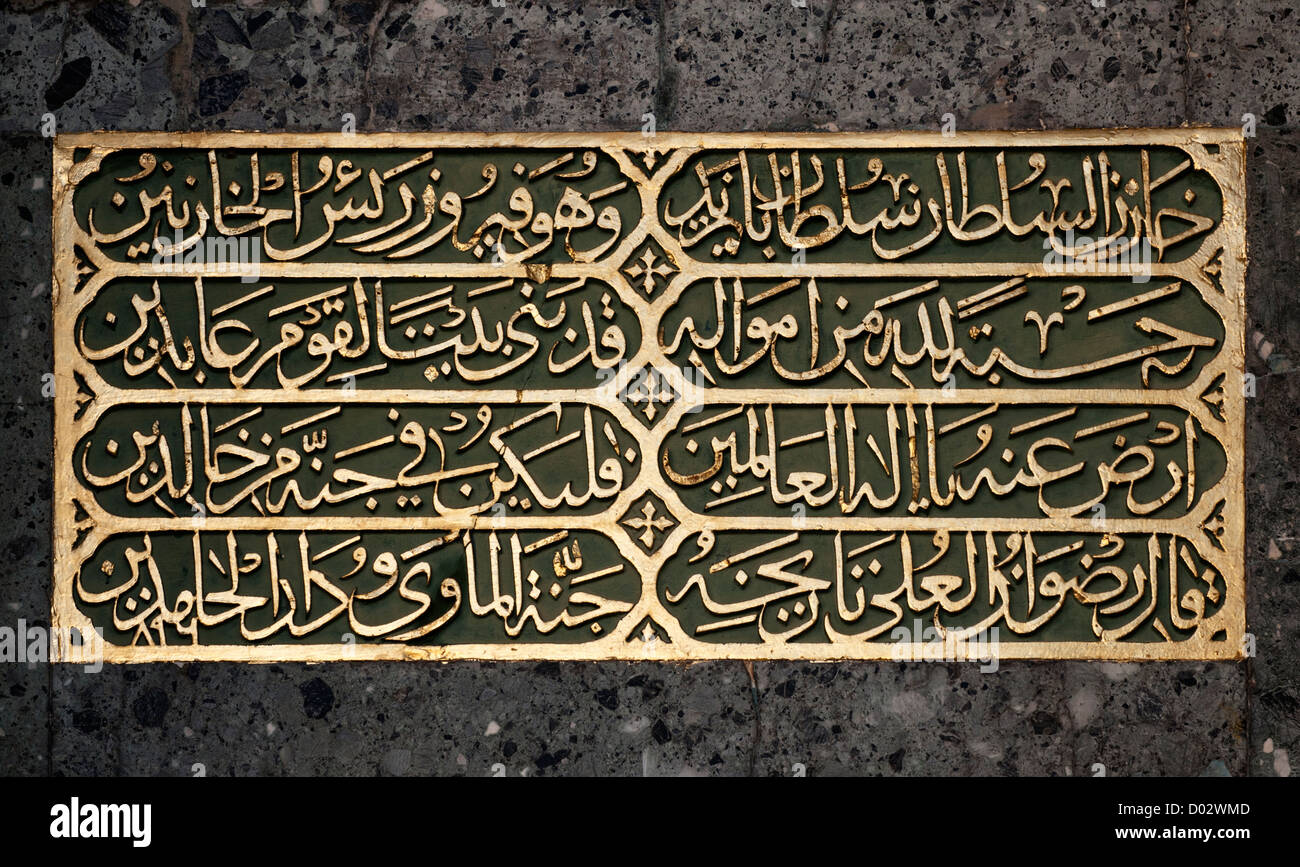 خازن السلطان سلطان بايزيد وهو فيروز رئس الخازنين
حسبة لله من امواله قد بنى بيتا لقوم عابدين
ارض عنه يا اله العالمين فليكن في جنة من خالدين
قال رضوان العلى تاريخه جنة الماوى ودار الحامدين
٨٩٦
alamy
Image ID: D02WMD
www.alamy.com